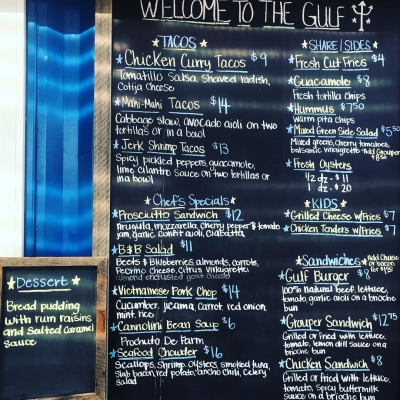 WELCOME TO THE GULF
TACOS
Chicken Curry Tacos $9
Tomatillo Salsa, Shaved radish,
Cotija cheese
Mahi-Mahi Tacos $14
Cabbage slaw, avocado aioli on two
tortillas or in a bowl
Jerk Shrimp Tacos $13
Spicy pickled peppers, guacamole,
lime cilantro Sauce on two tortillas or
in a bowl
Chef's Specials
Prosciutto Sandwich $12
Arugula, mozzarella, cherry pepper & tomato
jam, garlic confit aioli, ciabatta
B&B Salad $11
Beets & Blueberries, almonds, carrots,
Pecorino cheese, Citrus vinaigrette
almond encrusted goat cheese
Vietnamese Pork Chop $14
Cucumber, jicama, Carrot, red onion,
mint, rice
Cannolini Bean Soup $6
Prochuto De Parm
Seafood Chowder $16
Scallops, Shrimp, oysters, smoked tuna,
Slab bacon, red potato, ancho chili, Celery
salad
SHARE/SIDES
Fresh Cut Fries $4
Guacamole $8
Fresh tortilla chips
Hummus $7.50
warm pita chips
Mixed Green Side Salad $5.50
Mixed greens, cherry tomatoes,
balsamic vinaigrette *Add Grouper
Fresh Oysters
1/2 dz - $11
1 dz - $20
KIDS
Grilled Cheese w/Fries $7
Chicken Tenders w/Fries $7
Sandwiches *Add Cheese
or bacon
Gulf Burger $8
100% natural beef, lettuce,
tomato, garlic aioli on a brioche
bun
Grouper Sandwich $12.75
Grilled or fried with lettuce,
tomato, lemon dill sauce on a
brioche bun
Chicken Sandwich $8
Grilled or Fried with lettuce,
tomato, spicy buttermilk
sauce on a brioche bun
Dessert
Bread pudding
with rum raisins
and salted caramel
sauce